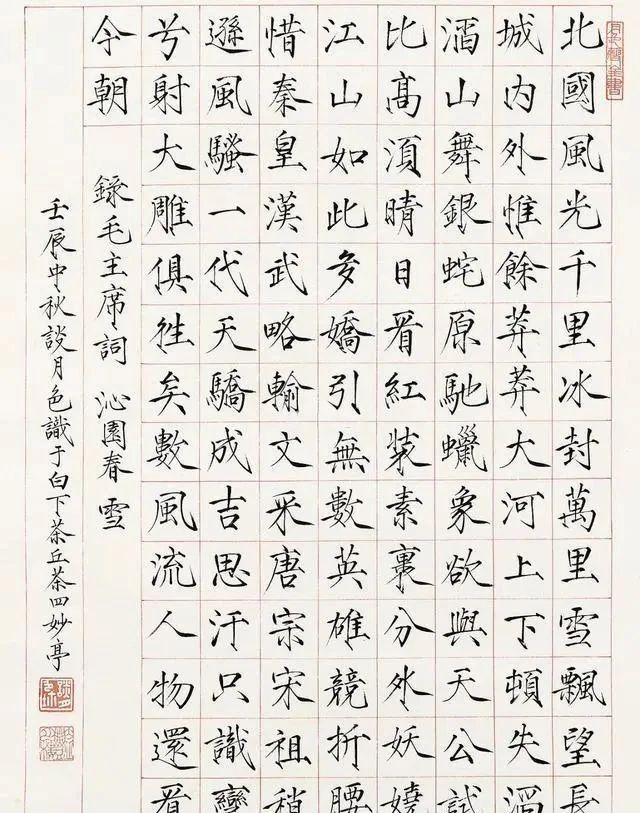 北國風光千里冰封萬里雪飄望長
城内外惟餘莽莽大河上下頓失滔
滔山舞銀蛇原馳蠟象欲與天公試
比高須晴日看紅裝素裹分外妖嬈
江山如此多嬌引無數英雄競折腰
惜秦皇漢武略輸文采唐宗宋祖稍
遜風騷一代天驕成吉思汗只識彎
兮射大雕俱往矣數風流人物還看
今朝
錄毛主席詞 沁園春雪
壬辰中秋談月色識于白下茶丘茶四妙亭